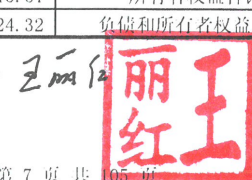 24.32 负债和所有者权益
王丽红
王丽红
第 7 页 共 105 页